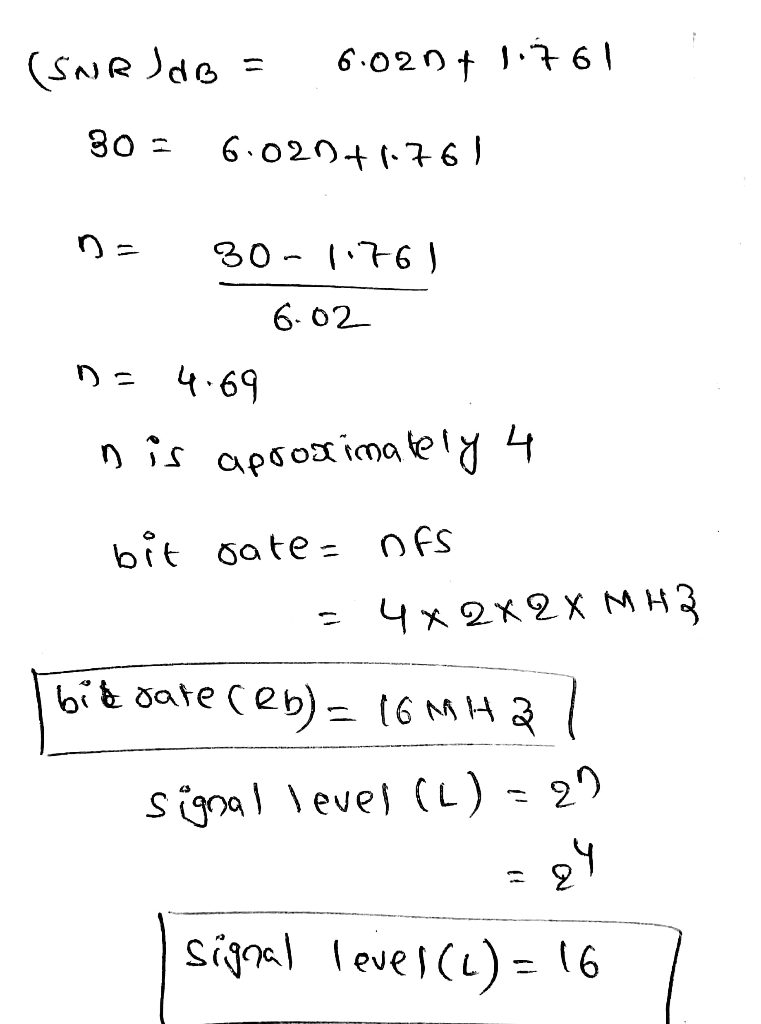 (SNR)dB = 6.02n + 1.761
30 = 6.02n + 1.761
n = 30 - 1.761
6.02
n = 4.69
n is aproximately 4
bit rate = nfs
= 4 x 2 x 2 x MHz
bit rate (Rb) = 16 MHz
signal level (L) = 2ⁿ
= 2⁴
signal level (L) = 16